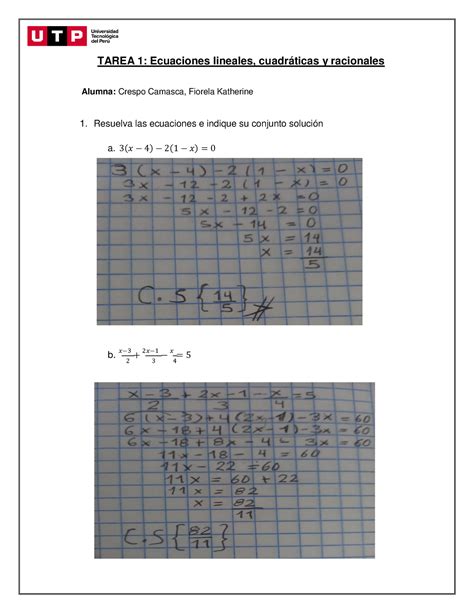 UTP Universidad Tecnológica del Perú
TAREA 1: Ecuaciones lineales, cuadráticas y racionales
Alumna: Crespo Camasca, Fiorela Katherine
1. Resuelva las ecuaciones e indique su conjunto solución
a. 3(x − 4) − 2(1 − x) = 0
3(x - 4) - 2(1 - x) = 0
3x - 12 - 2(1 - x) = 0
3x - 12 - 2 + 2x = 0
5x - 12 - 2 = 0
5x - 14 = 0
5x = 14
x = 14/5
C.S {14/5} #
b. x−3/2 + 2x−1/3 − x/4 = 5
x-3/2 + 2x-1/3 - x/4 = 5
6(x-3)+4(2x-1)-3x = 60
6x-18+4(2x-1)-3x = 60
6x-18+8x-4-3x = 60
11x-18-4 = 60
11x-22 = 60
11x = 60+22
11x = 82
x = 82/11
C.S {82/11}